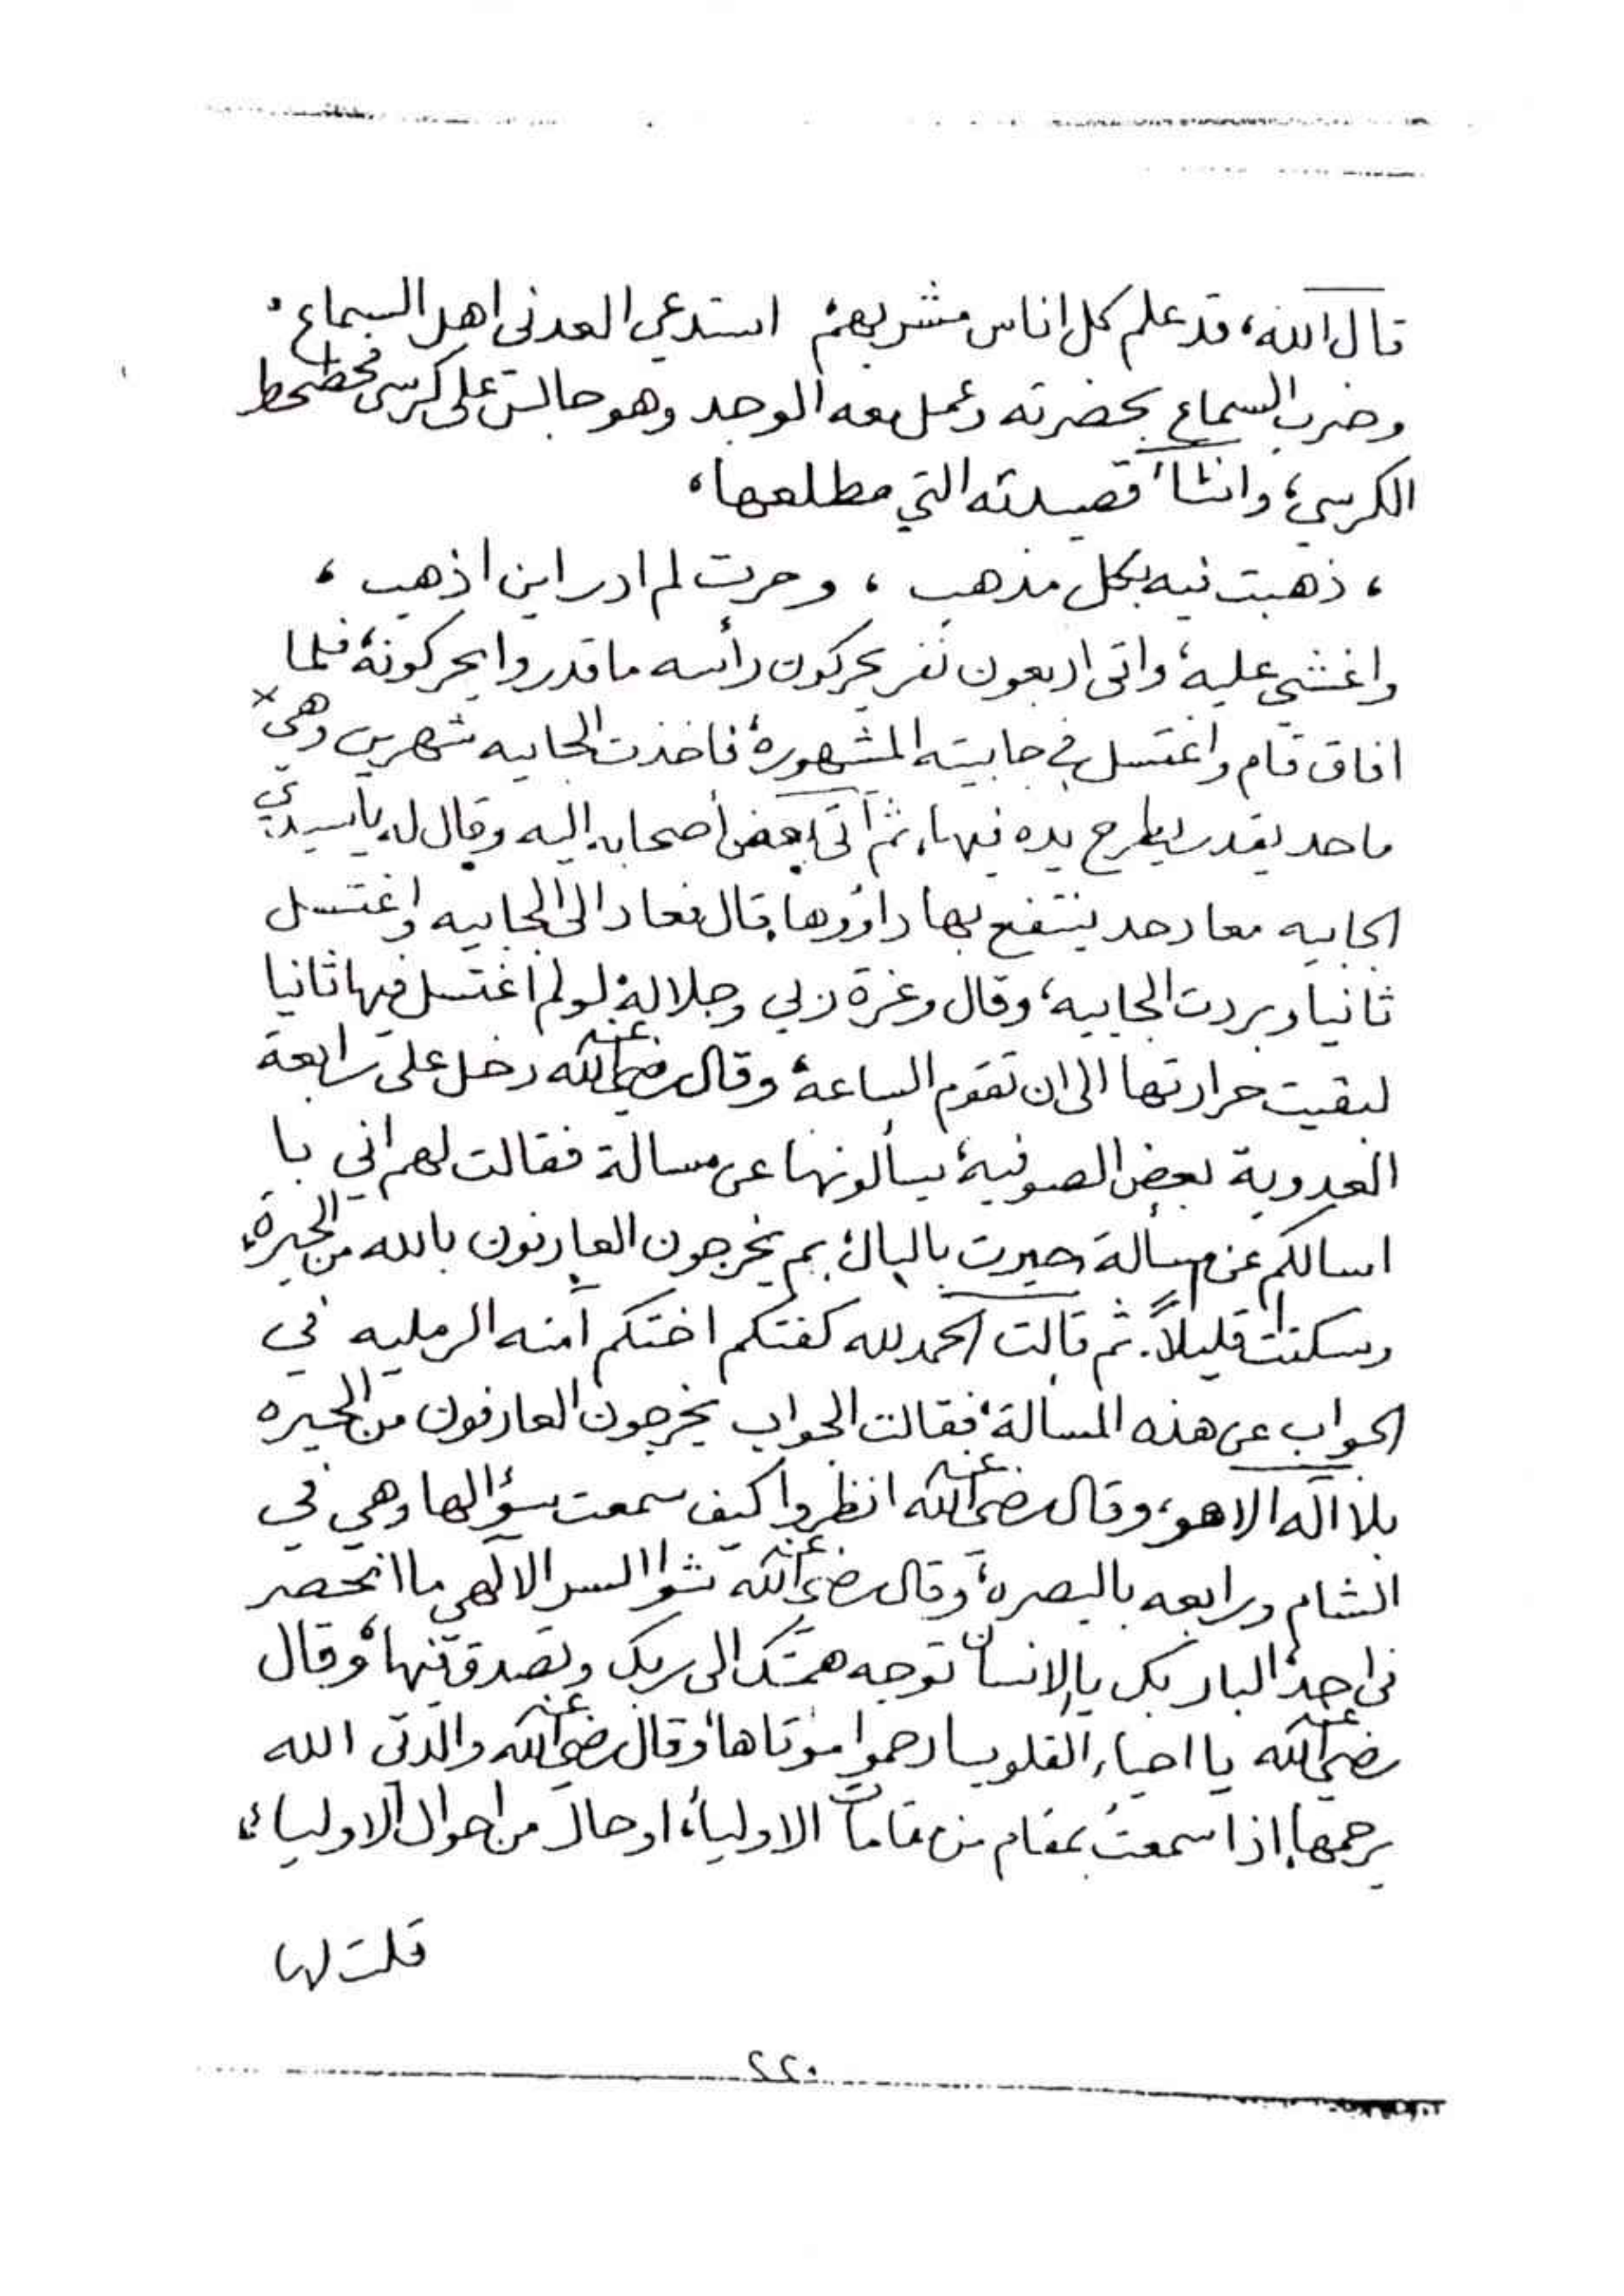 قال الله، قد علم كل اناس مشربهم، استدعى العدني اهل السماع،
وضرب السماع بحضرته وعمل معه الوجد وهو جالس على كرسي
الكرسي، وانشأ قصيدته التي مطلعها،
، ذهبت فيه بكل مذهب ، وحرت لم ادر اين اذهب ،
واغشي عليه، واتى اربعون نفر يحركون رأسه ما قدروا يحركونه، فلما
افاق قام واغتسل في جابيته المشهورة، فاخذت الجابيه شهرين وهي
ما حد يقدر يطرح يده فيها، ثم أتى بعض أصحابه اليه وقال له يا سيدي
الجابيه معاد حد ينتفع بها قال فعاد الى الجابيه واغتسل
ثانيا وبردت الجابيه، وقال وعزة ربي وجلاله لو لم اغتسل فيها ثانيا
لبقيت حرارتها الى ان تقوم الساعة، وقال رضي الله عنه دخل على رابعة
العدوية بعض الصوفية، يسألونها عن مسالة فقالت لهم اني با
اسالكم عن مسألة حيرت بالبال، بم يخرجون العارفون بالله من الحيرة،
وسكتت قليلاً. ثم قالت الحمد لله كفتكم اختكم آمنه الرمليه في
الجواب عن هذه المسالة، فقالت الجواب يخرجون العارفون من الحيره
بلا اله الا هو، وقال رضي الله عنه انظروا كيف سمعت سؤالها وهي في
الشام ورابعه بالبصرة، وقال رضي الله عنه شوا السر الالهي ما انحصر
في احد، البار بك يا الانسان توجه همتك الى ربك وتصدق فيها، وقال
رضي الله عنه يا احياء القلوب ارحموا موتاها، وقال رضي الله عنه والدتي الله
يرحمها، اذا سمعت بمقام من مقامات الاولياء، او حال من احوال الاولياء،
قلت لها
٢٢٠